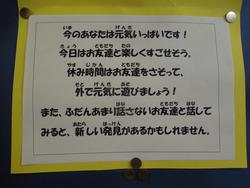 今のあなたは元気いっぱいです！
今日はお友達と楽しくすごせそう。
休み時間はお友達をさそって、
外で元気に遊びましょう！
また、ふだんあまり話さないお友達と話して
みると、新しい発見があるかもしれません。